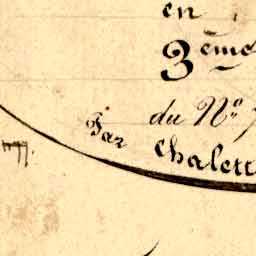 en
3eme
du No
Par
Chalett